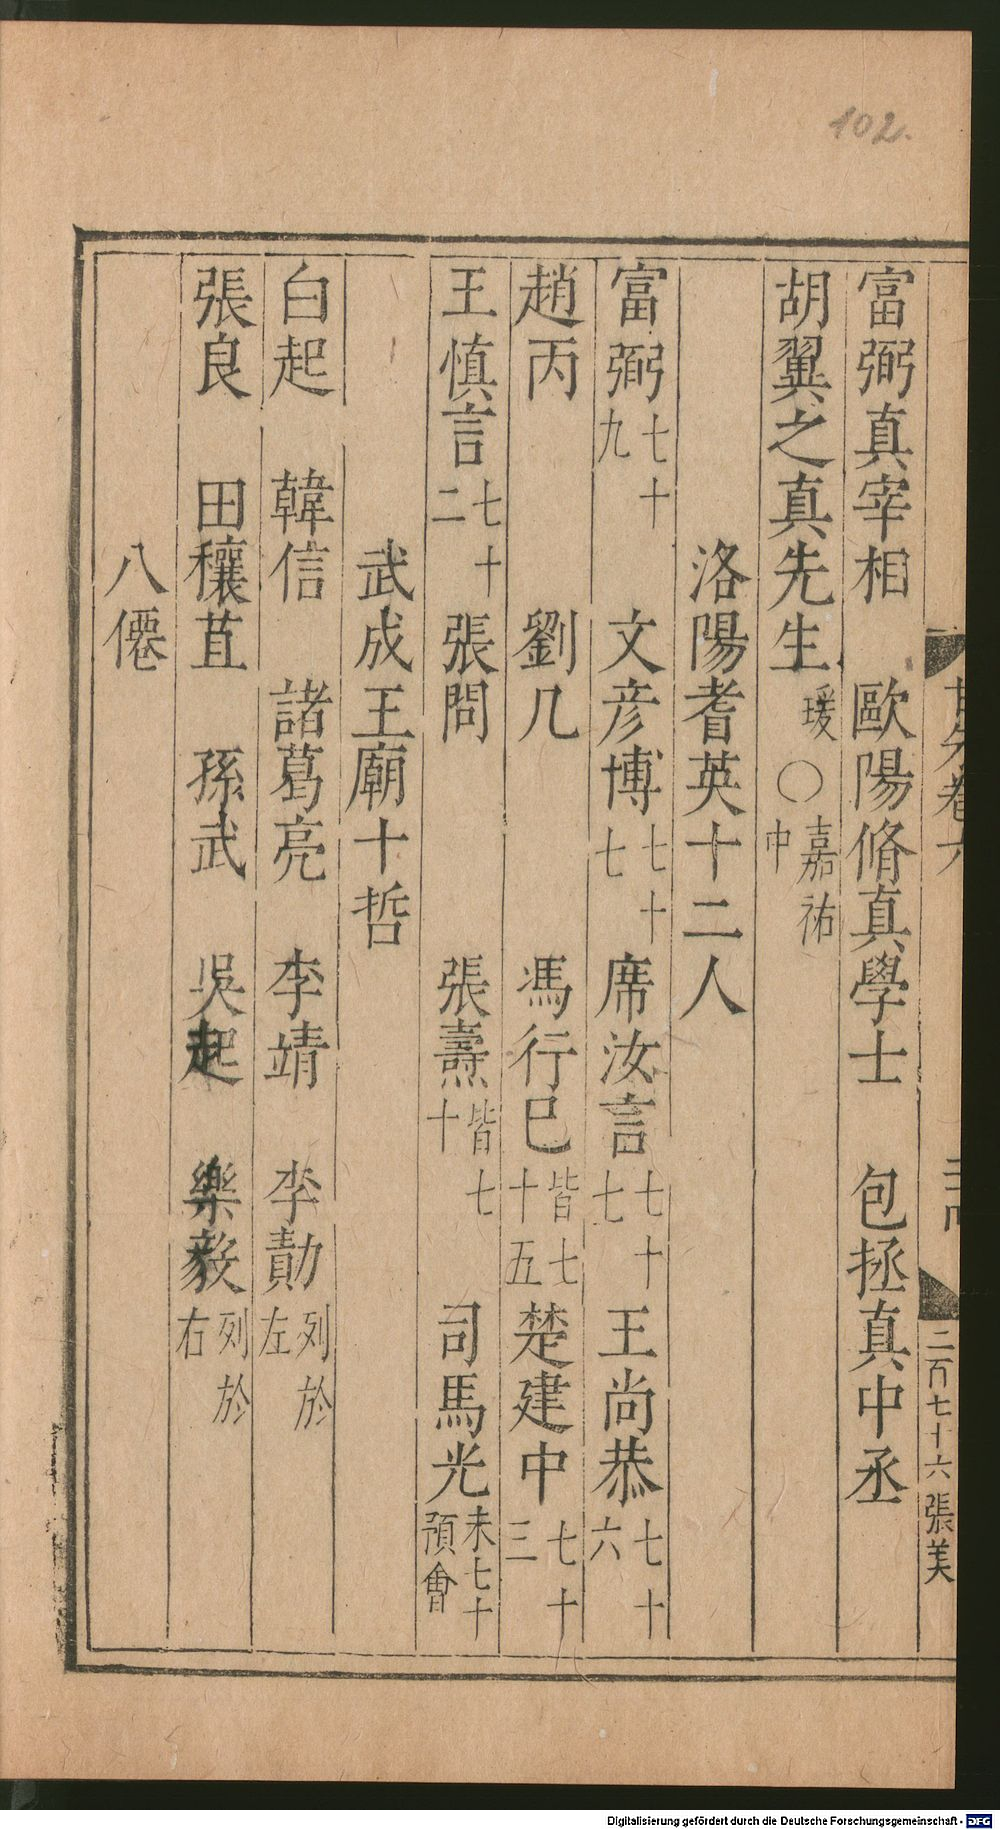 102.
富弼真宰相　歐陽脩真學士　包拯真中丞
胡翼之真先生瑗　○嘉祐中
洛陽耆英十二人
富弼七十九　文彦博七十七　席汝言七十七　王尚恭七十六
趙丙　劉几　馮行巳皆七十五　楚建中七十三
王慎言七十二　張問　張燾皆七十　司馬光未七十預會
武成王廟十哲
白起　韓信　諸葛亮　李靖　李勣列於左
張良　田穰苴　孫武　吳起　樂毅列於右
八僊
卷六
二百七十六張美
Digitalisierung gefördert durch die Deutsche Forschungsgemeinschaft - DFG